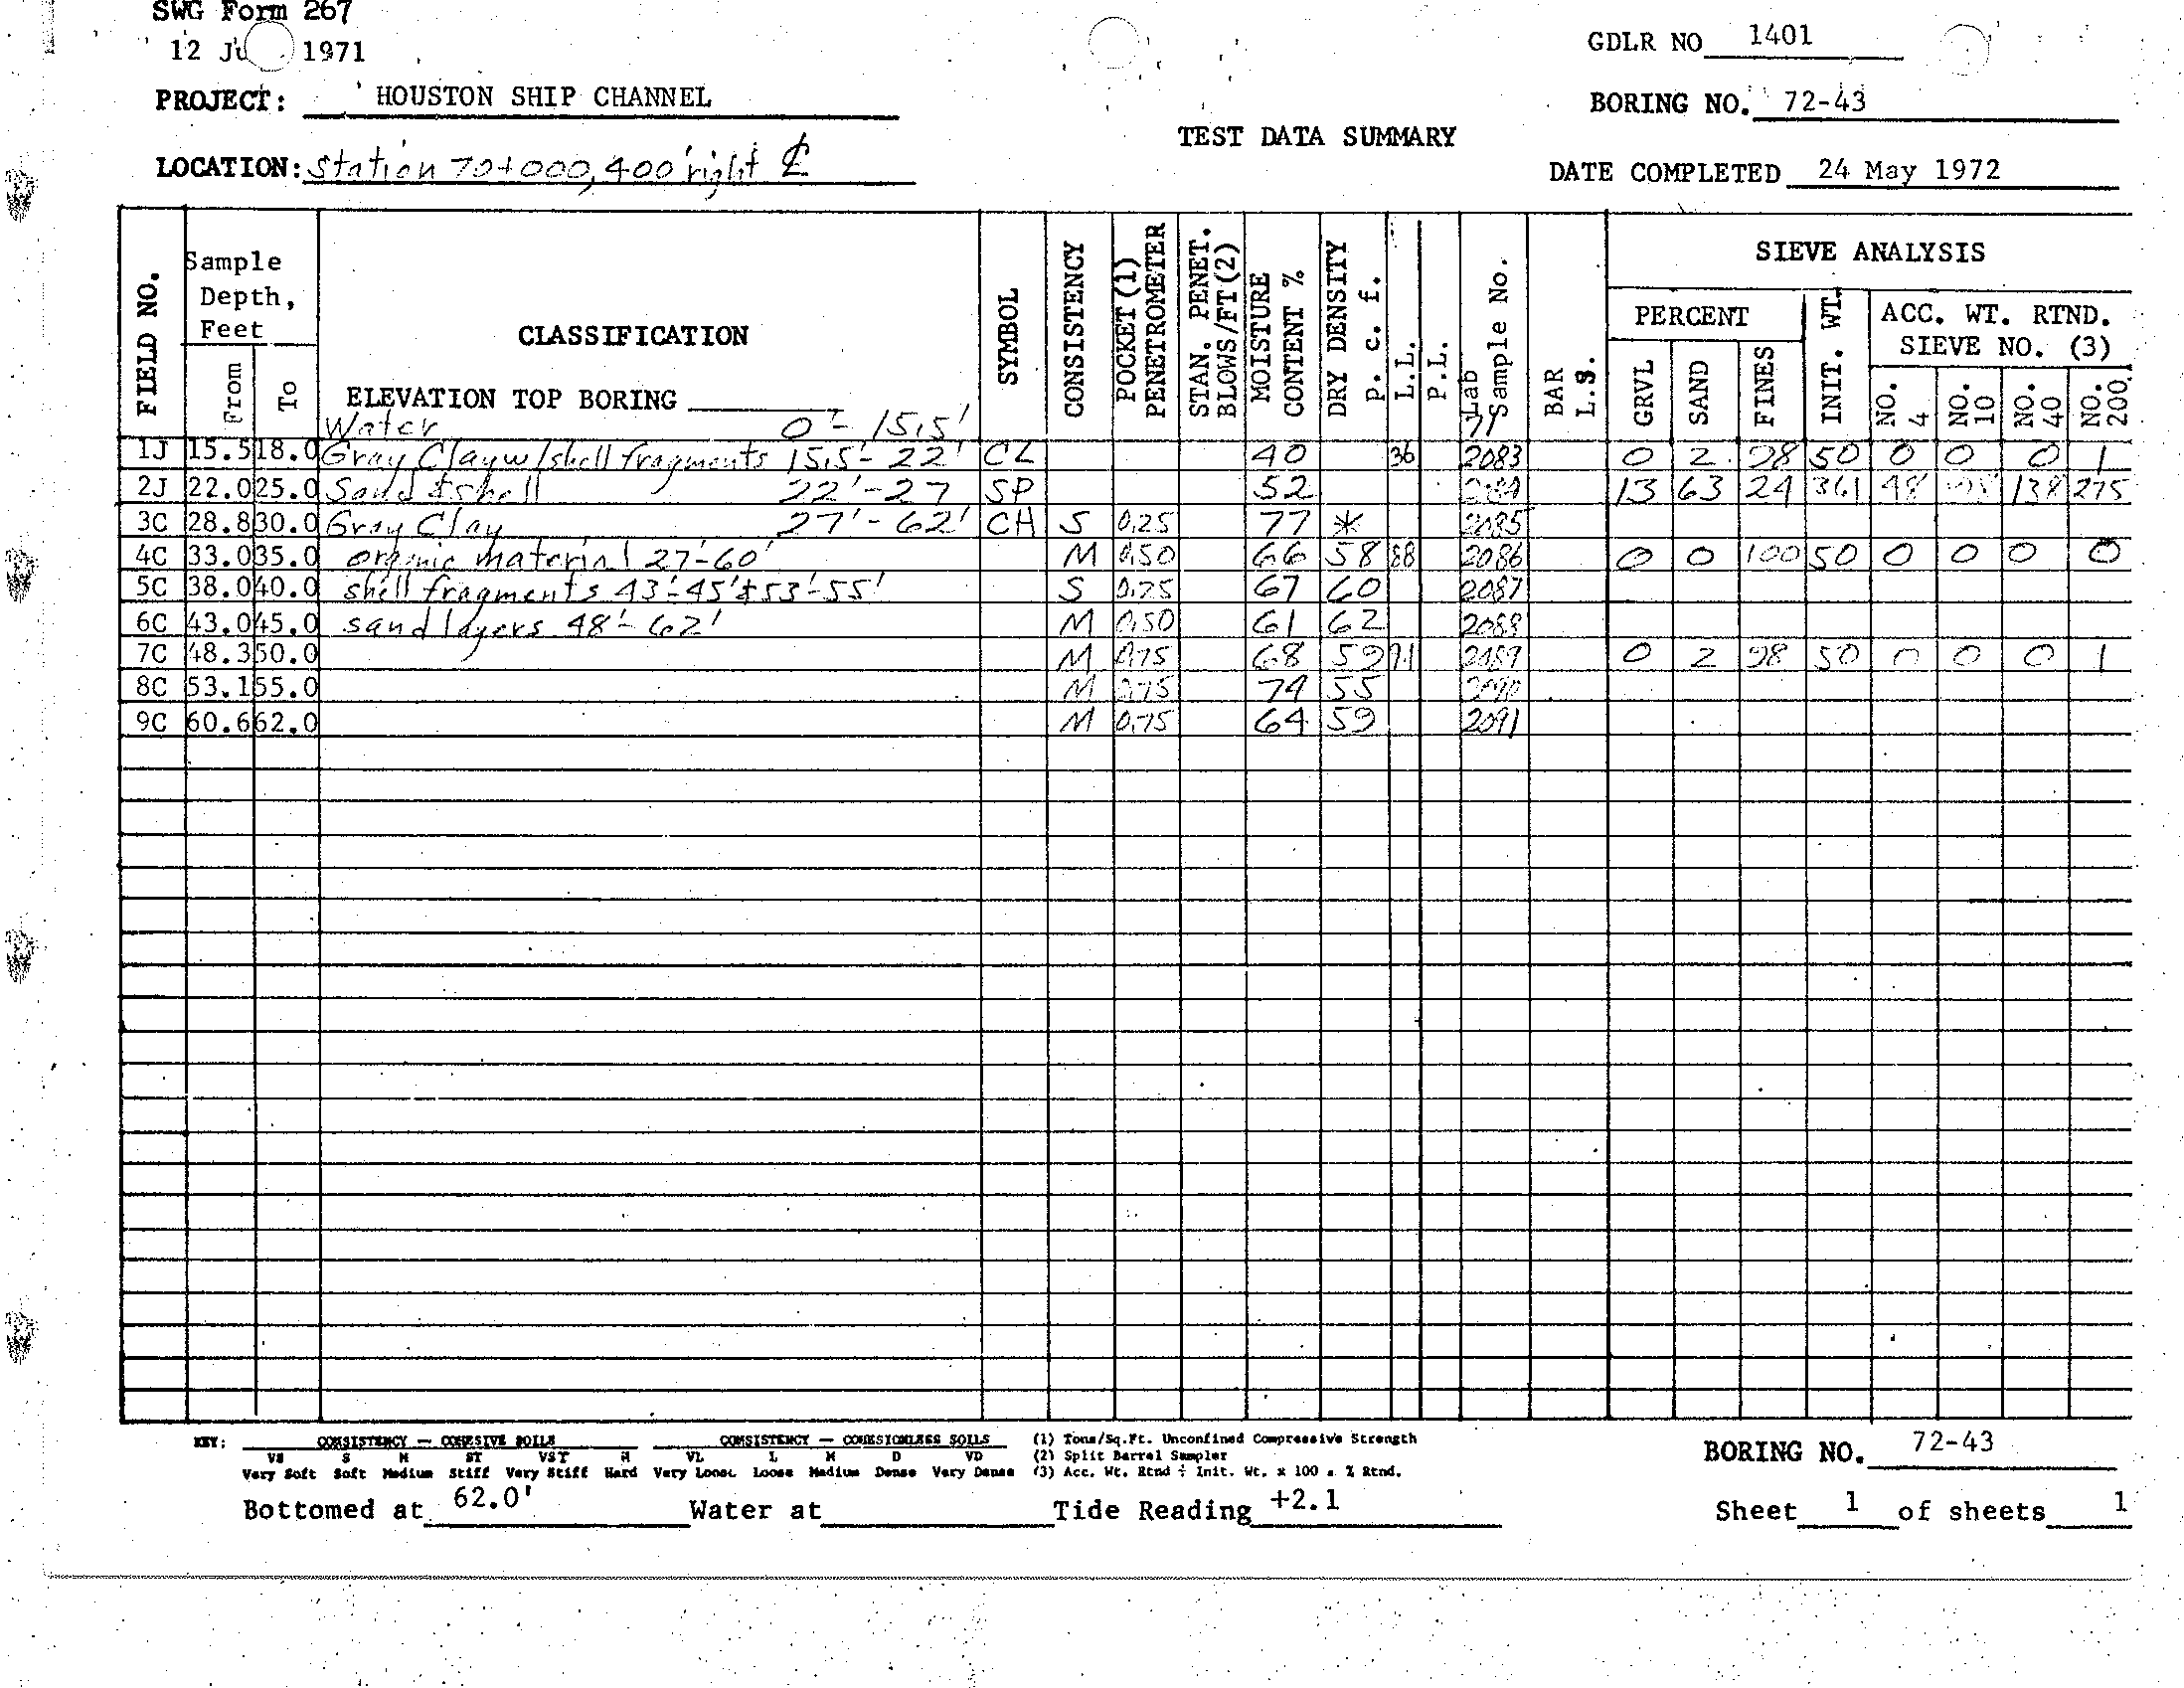 SWG Form 267
12 Ju 1971
GDLR NO 1401
PROJECT: HOUSTON SHIP CHANNEL
BORING NO. 72-43
TEST DATA SUMMARY
LOCATION: Station 70+000, 400' right ℄
DATE COMPLETED 24 May 1972
FIELD NO.
Sample Depth, Feet
From
To
CLASSIFICATION
ELEVATION TOP BORING
SYMBOL
CONSISTENCY
POCKET (1) PENETROMETER
STAN. PENET. BLOWS/FT(2)
MOISTURE CONTENT %
DRY DENSITY P. c. f.
L.L.
P.L.
Lab Sample No.
71
BAR L.S.
SIEVE ANALYSIS
PERCENT
GRVL
SAND
FINES
INIT. WT.
ACC. WT. RTND.
SIEVE NO. (3)
NO. 4
NO. 10
NO. 40
NO. 200
Water 0'- 15.5'
1J 15.5 18.0 Gray Clay w/shell fragments 15.5'- 22' CL 40 36 2083 0 2 98 50 0 0 0 1
2J 22.0 25.0 Sand & shell 22'-27 SP 52 13 63 24 361 48 138 275
3C 28.8 30.0 Gray Clay 27'- 62' CH S 0.25 77 * 2085
4C 33.0 35.0 organic material 27'-60' M 0.50 66 58 88 2086 0 0 100 50 0 0 0 0
5C 38.0 40.0 shell fragments 43'-45' & 53'-55' S 0.25 67 60 2087
6C 43.0 45.0 sand layers 48'- 62' M 0.50 61 62 2088
7C 48.3 50.0 M 0.75 68 59 91 2089 0 2 98 50 0 0 0 1
8C 53.1 55.0 M 0.75 74 55 2090
9C 60.6 62.0 M 0.75 64 59 2091
KEY: CONSISTENCY — COHESIVE SOILS CONSISTENCY — COHESIONLESS SOILS (1) Tons/Sq.Ft. Unconfined Compressive Strength
VS S M ST VST H VL L M D VD (2) Split Barrel Sampler
Very Soft Soft Medium Stiff Very Stiff Hard Very Loose Loose Medium Dense Very Dense (3) Acc. Wt. Rtnd ÷ Init. Wt. x 100 = % Rtnd.
BORING NO. 72-43
Bottomed at 62.0' Water at Tide Reading +2.1
Sheet 1 of sheets 1